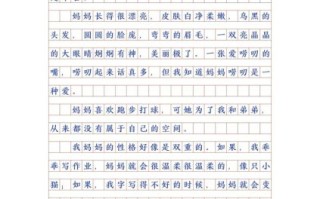 妈妈长得很漂亮，皮肤白净柔嫩，乌黑的
头发，圆圆的脸庞，弯弯的眉毛，一双亮晶晶
的大眼睛炯炯有神，美丽极了。一张爱唠叨的
嘴，唠叨起来话真多，但我知道妈妈唠叨是一
种爱。
妈妈喜欢跑步打球，可她为了我和弟弟，
从来都没有属于自己的空间。
我妈妈的性格好像是双重的。如果，我乖
乖写作业，妈妈就会很温柔很温柔的，像只小
猫；如果，我字写得不好的时候，妈妈就会变